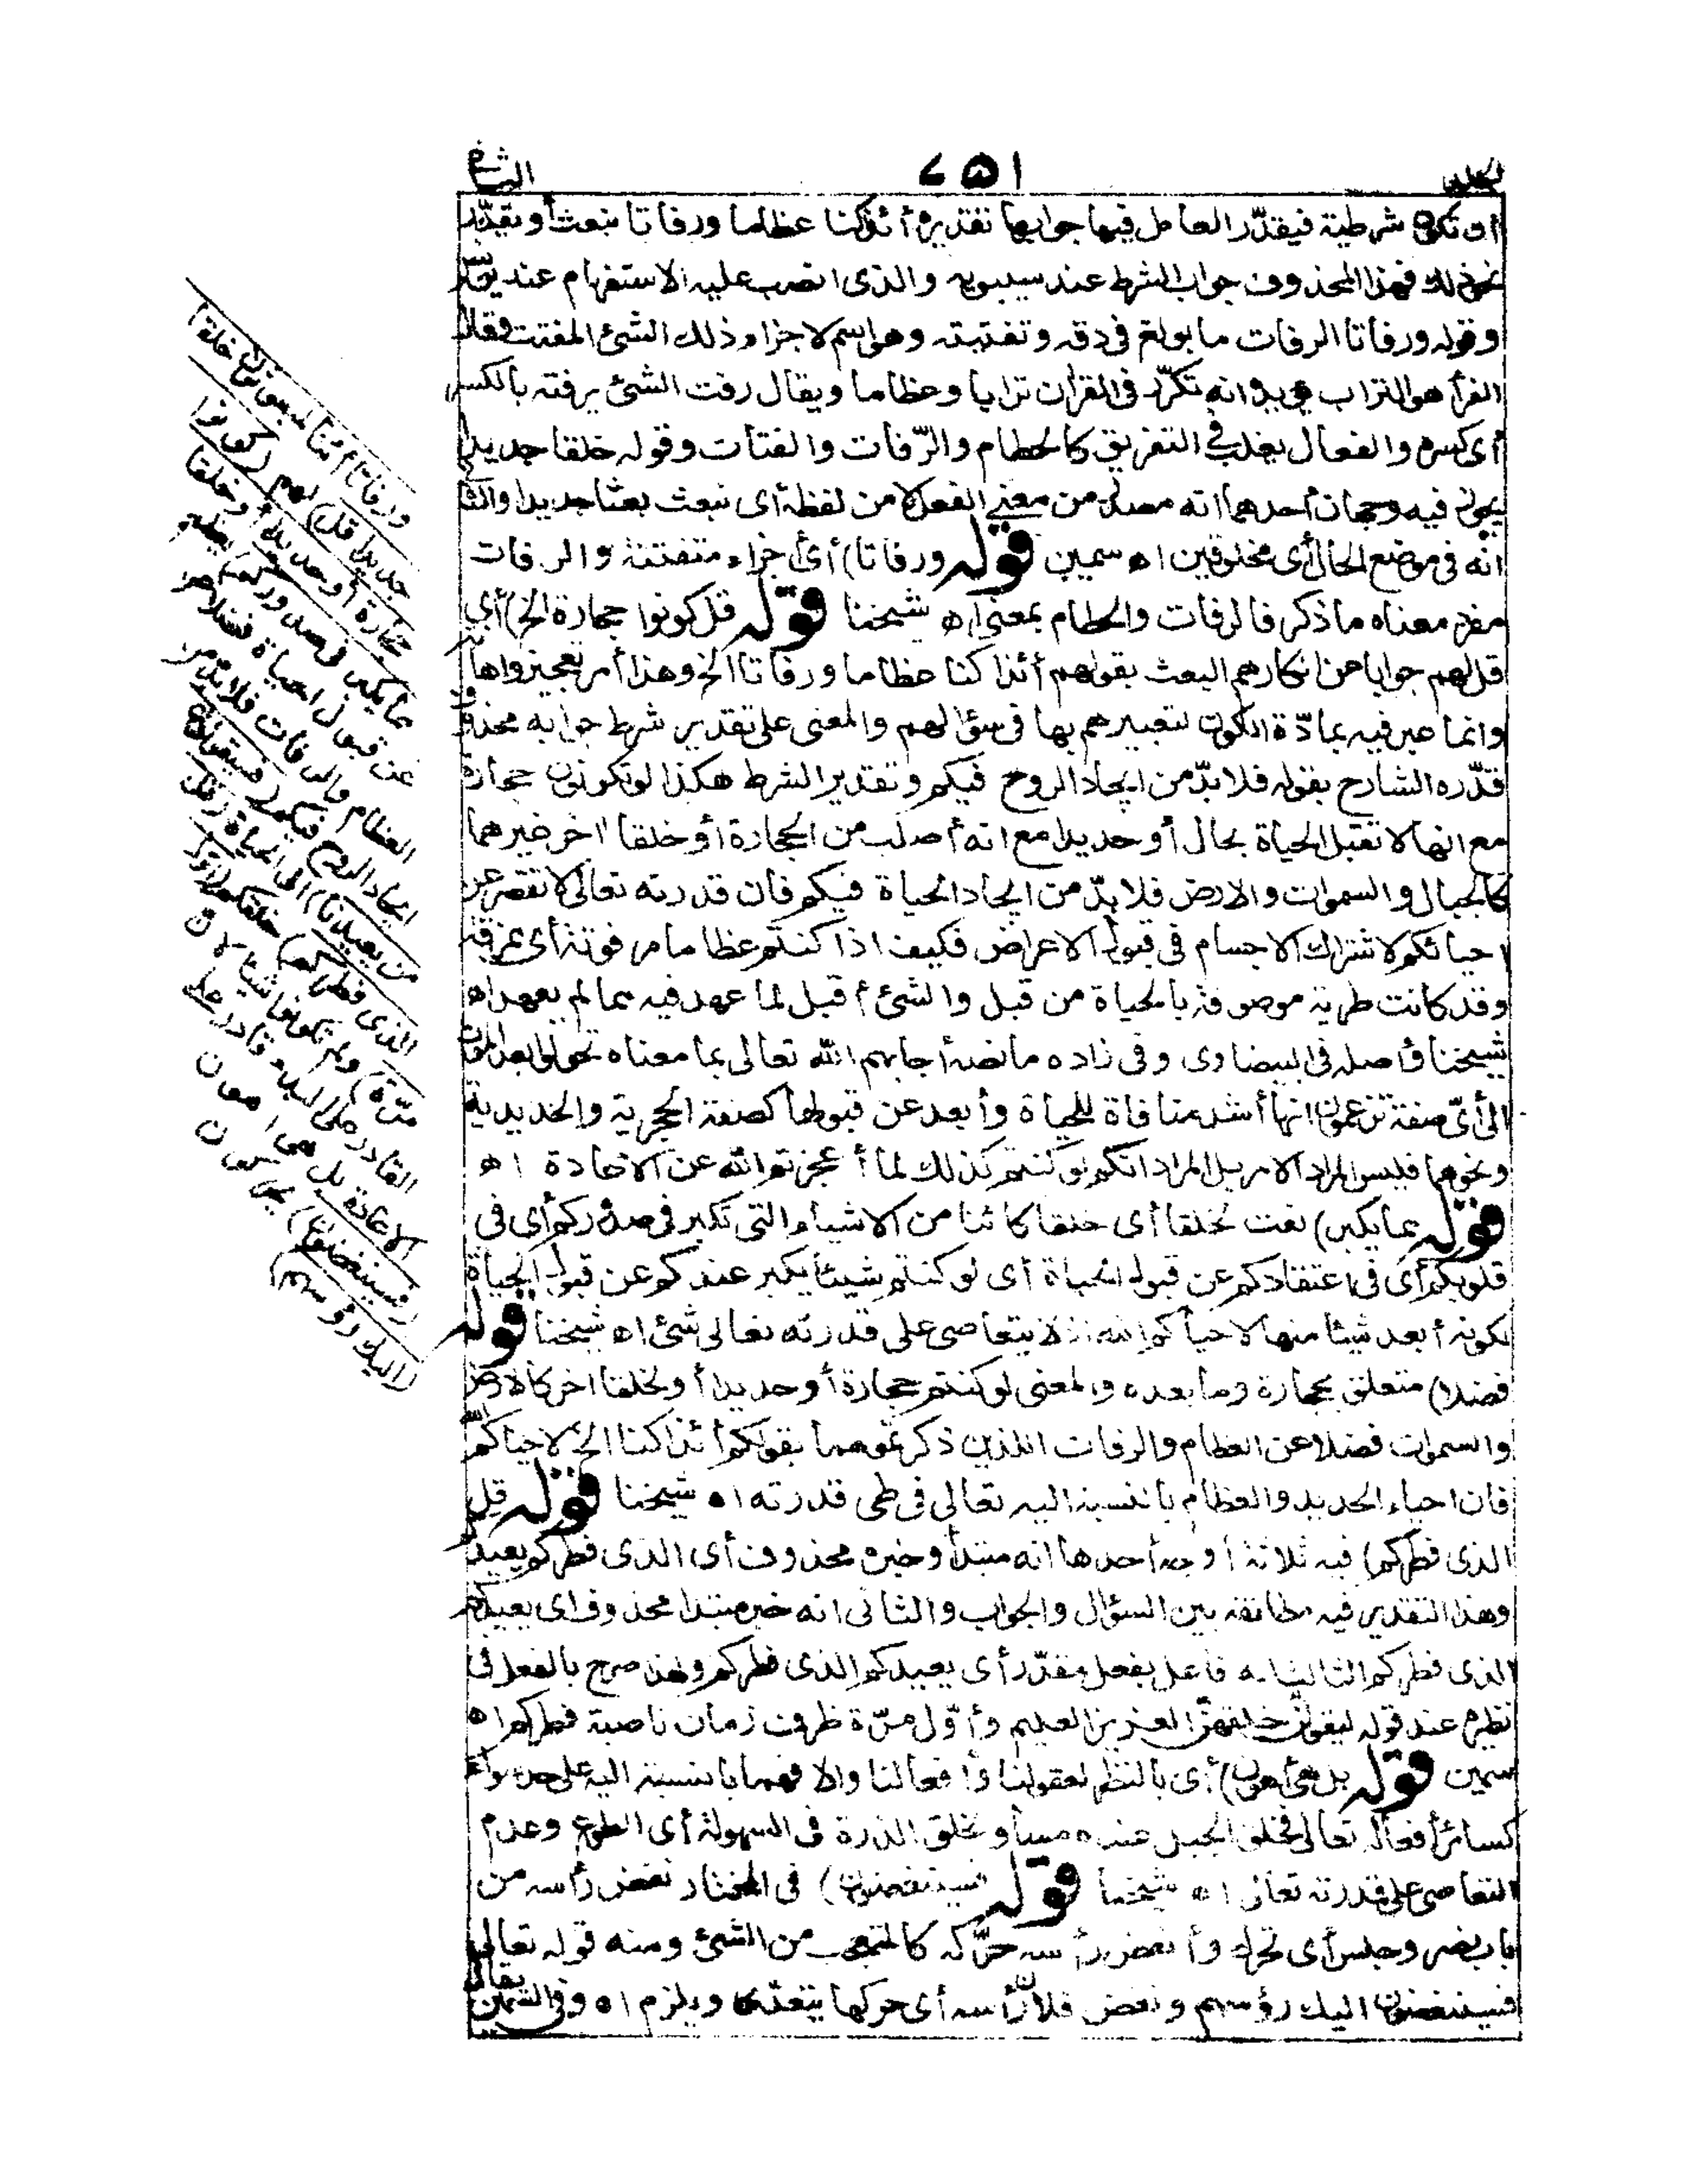 الثانى
٧٥١
أن تكون شرطية فيقدّر العامل فيها جوابها تقديره أئذا كنا عظاما ورفاتا نبعث أو نعاد
نحو ذلك فهذا المحذوف جواب الشرط عند سيبويه والذى انصب عليه الاستفهام عند يونس
وقوله ورفاتا الرفات ما بولغ فى دقه وتفتيته وهو اسم لاجزاء ذلك الشئ المفتت وقال
الفرأ هو التراب يؤيده انه تكرّر فى القرآن ترابا وعظاما ويقال رفت الشئ يرفته بالكسر
أى كسره والفعال يغلب فى التفريق كالحطام والرّفات والفتات وقوله خلقا جديدا
يجوز فيه وجهان أحدهما انه مصدر من معنى الفعل لا من لفظه أى نبعث بعثا جديدا والثانى
انه فى موضع الحال أى مخلوقين اه سمين قوله ورفاتا) أى أجزاء متفتتة والرفات
مفرد معناه ما ذكر فالرفات والحطام بمعنى اه شيخنا قوله قل كونوا حجارة الخ) أى
قل لهم جوابا عن انكارهم البعث بقولهم أئذا كنا عظاما ورفاتا الخ وهذا أمر تعجيز واهانة
وانما عبر فيه بمادّة الكون لتعبيرهم بها فى سؤالهم والمعنى على تقدير شرط جوابه محذوف
قدّره الشارح بقوله فلا بدّ من ايجاد الروح فيكم وتقدير الشرط هكذا لو تكونون حجارة
مع انها لا تقبل الحياة بحال أو حديدا مع انه أصلب من الحجارة أو خلقا اخر غيرهما
كالجبال والسموات والارض فلا بدّ من ايجاد الحياة فيكم فان قدرته تعالى لا تقصر عن
احيائكم لاشتراك الاجسام فى قبول الاعراض فكيف اذا كنتم عظاما مرفوتة أى ممزقة
وقد كانت طرية موصوفة بالحياة من قبل والشئ أقبل لما عهد فيه مما لم يعهد اه
شيخنا وأصله فى البيضاوى وفى زاده ما نصه أجابهم الله تعالى بما معناه تحولوا بعد الموت
الى أىّ صفة تزعمون انها أشد منافاة للحياة وأبعد عن قبولها كصفة الحجرية والحديدية
ونحوهما فليس المراد الامر بل المراد انكم لو كنتم كذلك لما أعجزتم الله عن الاعادة اه
قوله مما يكبر) نعت لخلقا أى خلقا كائنا من الاشياء التى تكبر فى صدوركم أى فى
قلوبكم أى فى اعتقادكم عن قبول الحياة أى لو كنتم شيئا يكبر عندكم عن قبول الحياة
لكونه أبعد شيئا منها لاحياكم الله اذ لا يتعاصى على قدرته تعالى شئ اه شيخنا قوله
فضلا) متعلق بحجارة وما بعده والمعنى لو كنتم حجارة أو حديدا أو خلقا اخر كالارض
والسموات فضلا عن العظام والرفات اللذين ذكرتموهما بقولكم أئذا كنا الخ لاحياكم
فان احياء الحديد والعظام بالنسبة اليه تعالى فى طى قدرته اه شيخنا قوله قل
الذى فطركم) فيه ثلاثة أوجه أحدها انه مبتدأ وخبره محذوف أى الذى فطركم يعيدكم
وهذا التقدير فيه مطابقة بين السؤال والجواب والثانى انه خبر مبتدا محذوف اى يعيدكم
الذى فطركم الثالث انه فاعل بفعل مقدّر أى يعيدكم الذى فطركم ولهذا صرح بالفعل فى
نظيره عند قوله ليقولن خلقهن العزيز العليم وأوّل مرّة ظرف زمان ناصبه فطركم اه
سمين قوله بل هى أهون) أى بالنظر لعقولنا وأفعالنا والا فهما بالنسبة اليه على حد سواء
كسائر أفعاله تعالى فخلق الجبل عنده مساو لخلق الذرة فى السهولة أى الطوع وعدم
التعاصى على قدرته تعالى اه شيخنا قوله فسينغضون) فى المختار نغض رأسه من
باب نصر وجلس أى تحرك وأنغض رأسه حرّكه كالمتعجب من الشئ ومنه قوله تعالى
فسينغضون اليك رؤسهم ونغض فلان رأسه أى حركها يتعدّى ويلزم اه وفى السمين يقال
ورفاتا أئنا لمبعوثون خلقا
جديدا قل) لهم (كونوا
حجارة أو حديدا أو خلقا
مما يكبر فى صدوركم) يعظم
عن قبول الحياة فضلا عن
العظام والرفات فلا بدّ من
ايجاد الروح فيكم (فسيقولون
من يعيدنا) الى الحياة (قل
الذى فطركم) خلقكم (أوّل
مرّة) ولم تكونوا شيئا لان
القادر على البدء قادر على
الاعادة بل هى اهون
(فسينغضون) يحركون
(اليك رؤسهم)